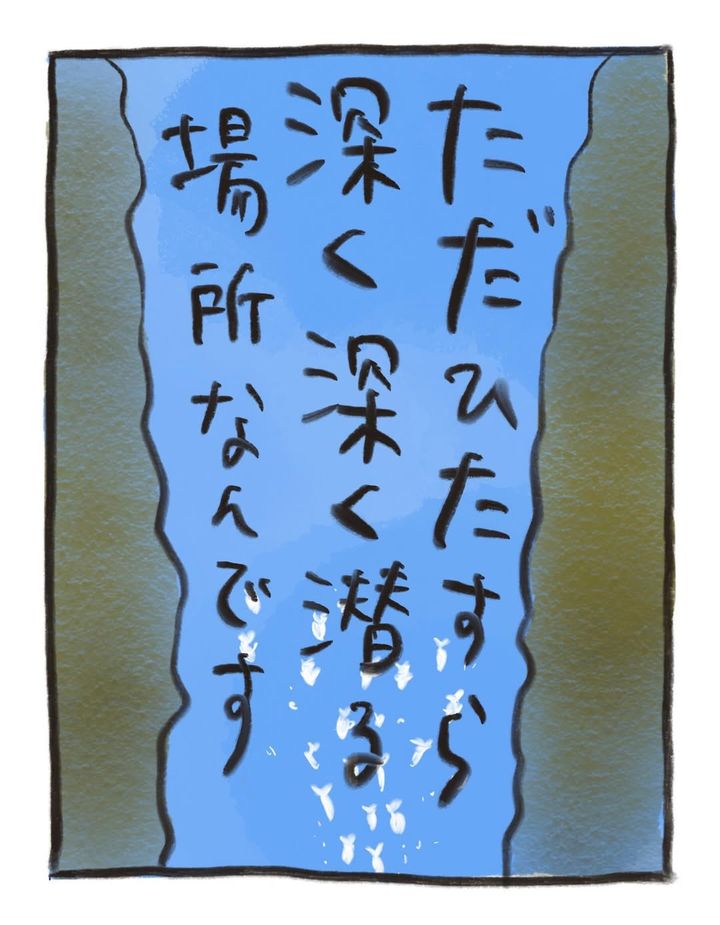 ただひたすら
深く深く潜る
場所なんです